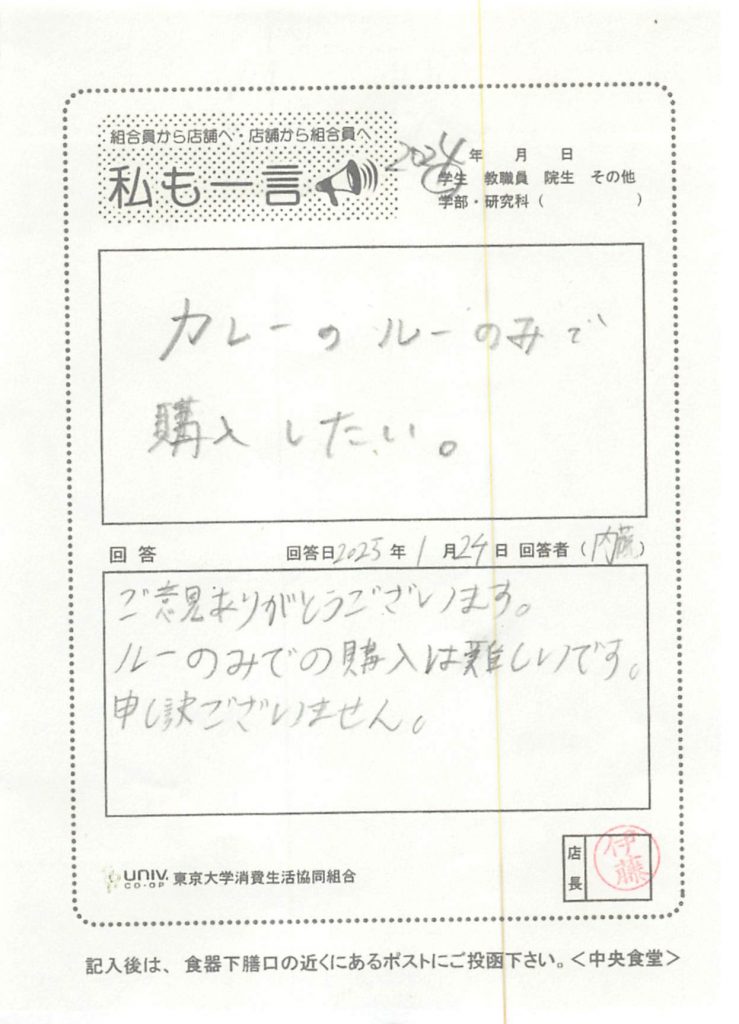 組合員から店舗へ・店舗から組合員へ
私も一言
2024年 月 日
学生 教職員 院生 その他
学部・研究科( )
カレーのルーのみで
購入したい。
回答 回答日2025年1月24日 回答者(内藏)
ご意見ありがとうございます。
ルーのみでの購入は難しいです。
申し訳ございません。
UNIV. CO-OP 東京大学消費生活協同組合
店長 伊藤
記入後は、食器下膳口の近くにあるポストにご投函下さい。<中央食堂>